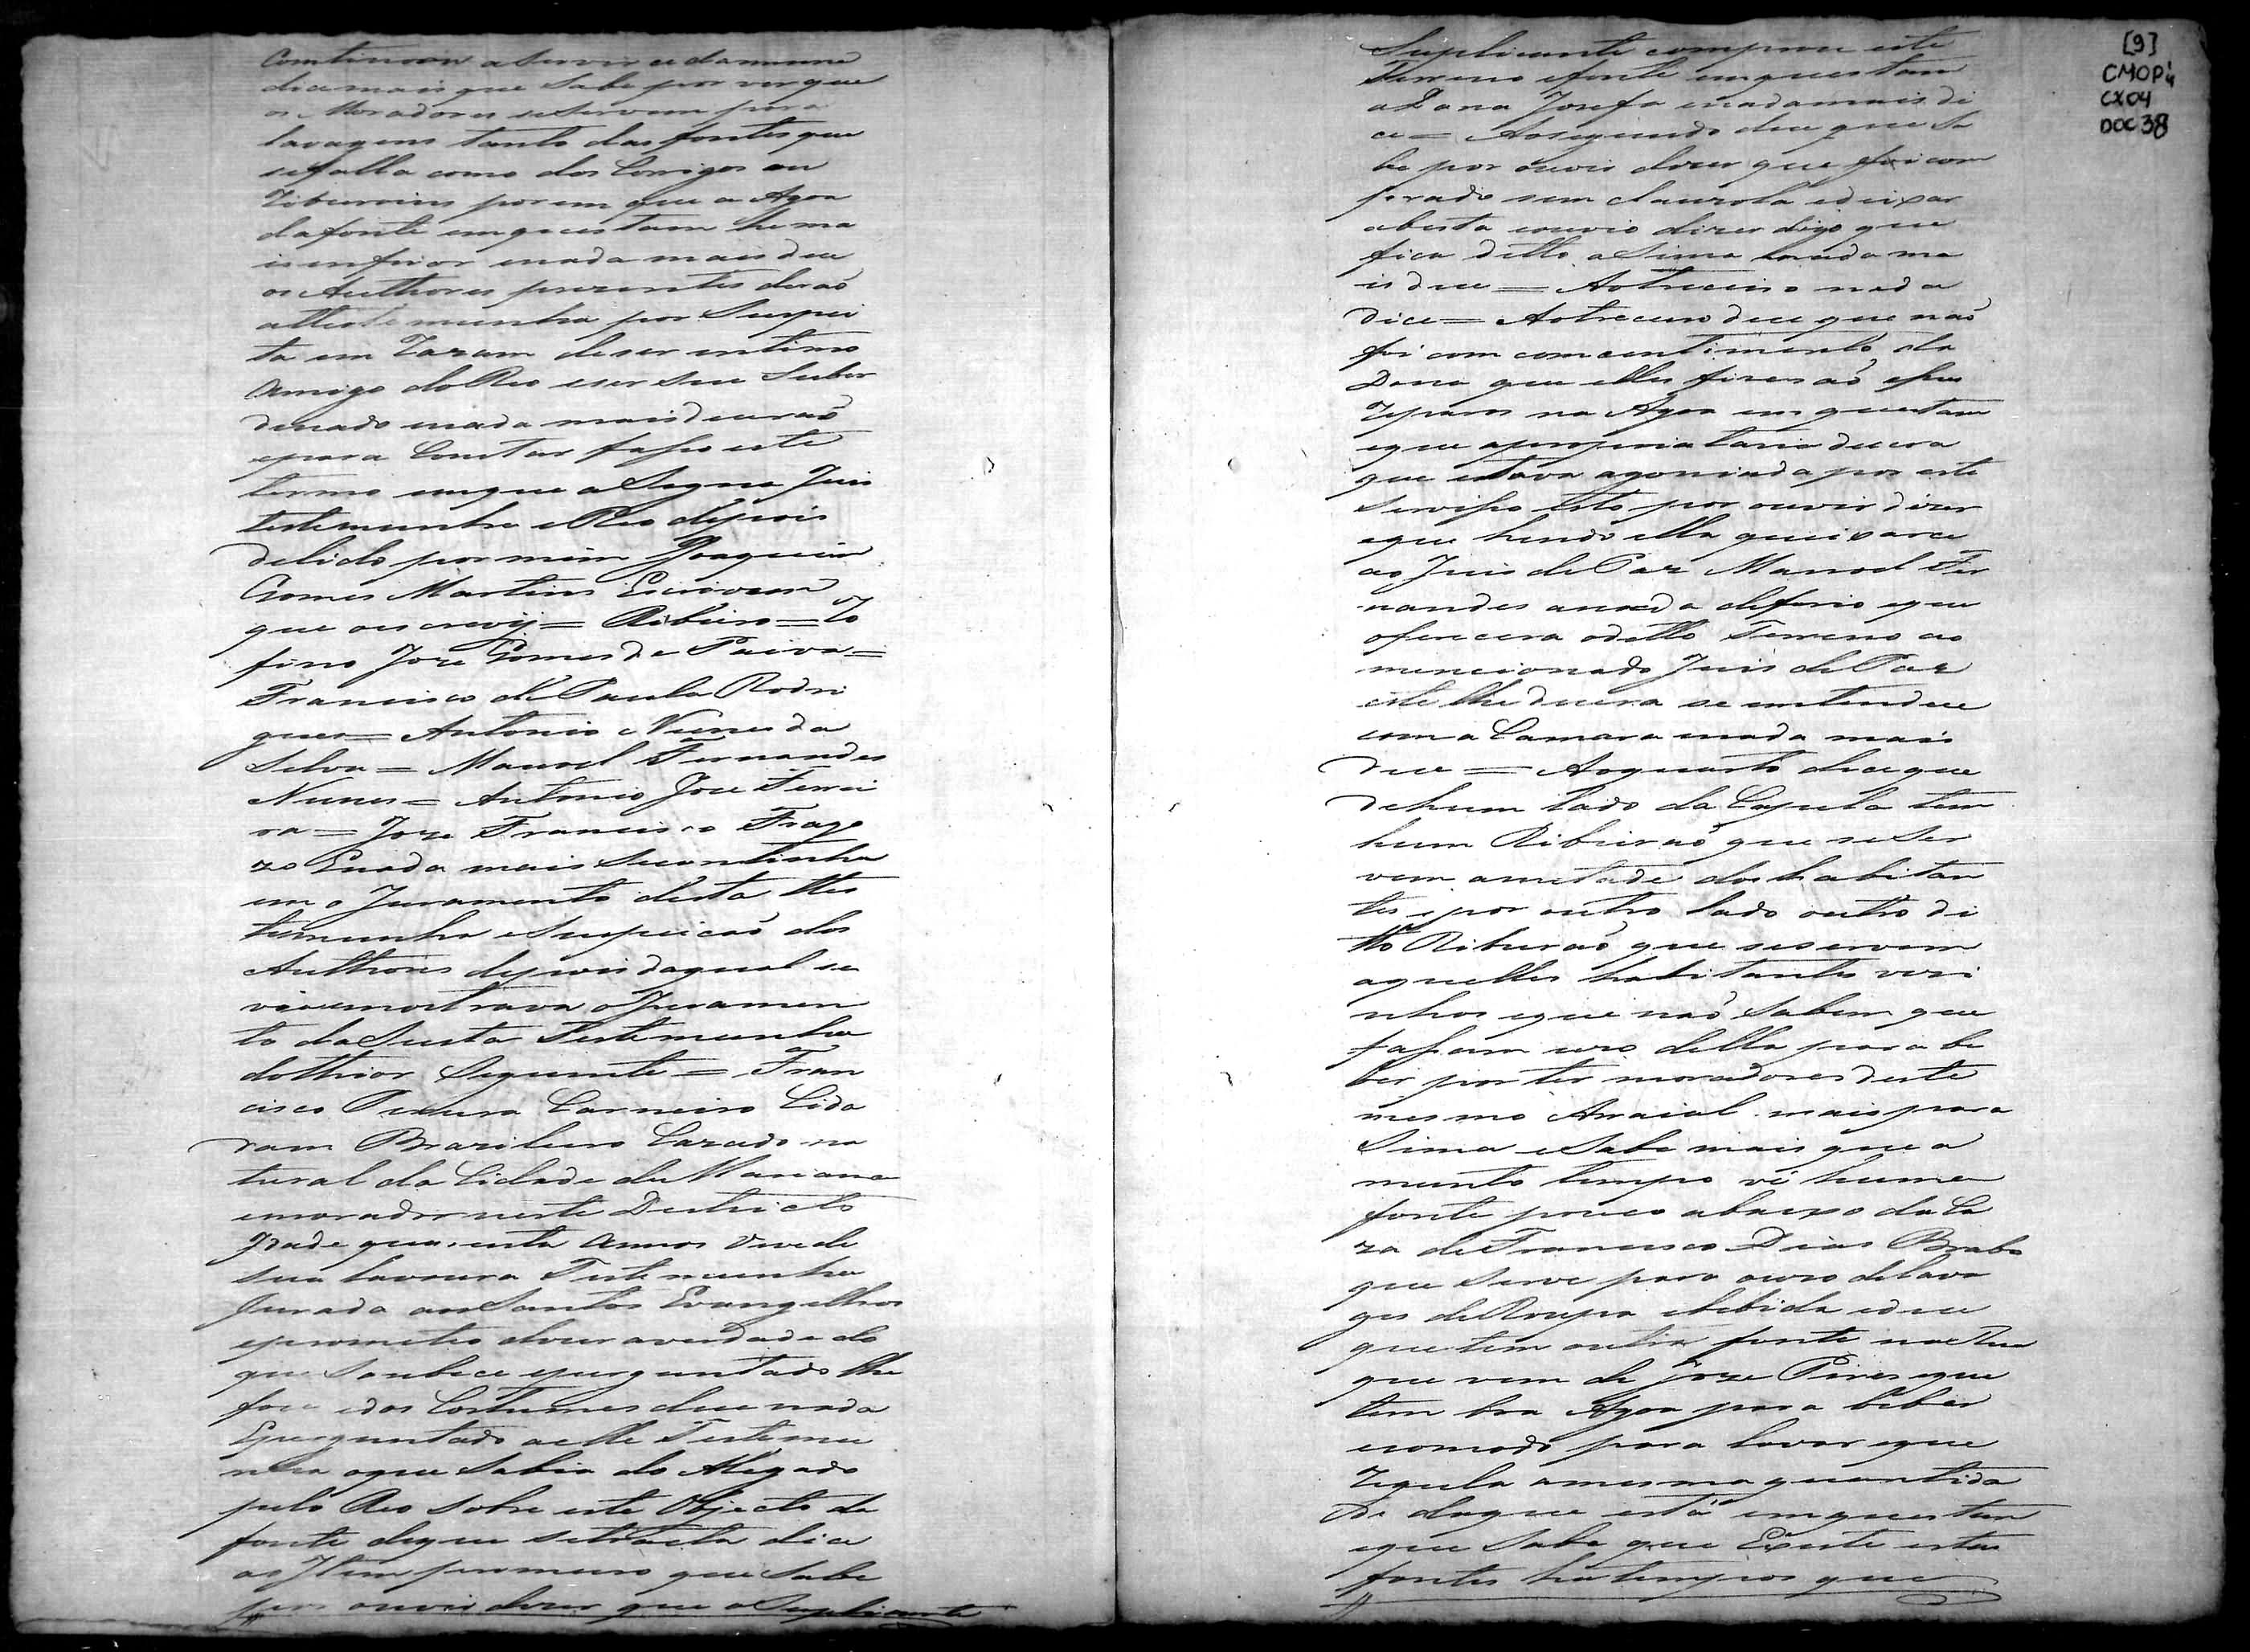 Continuou a servir ce da mesma
dice mais que Sabe por ver que
os Moradores se Servem para
lavagens tanto das fontes que
se falla como dos Corrigos ou
Ribeiroins porem que a Agoa
da fonte em questam he ma
is inferior enada mais dice
os Authores prezentes derão
attestemunha por Suspei
ta em Razam de ser intimo
Amigo do Reo eser seu Subor
denado enada mais diceraõ
epara Constar fasso este
termo emque aSigna Juis
testemunha e Reo depois
delido por mim Joaquim
Gomes Martins Escrivam
que oescrevÿ = Ribeiro = Ro
fino Joze Gomes de Paiva =
Francisco de Paula Rodri
gues = Antonio Nunes da
Silva = Manoel Fernandes
Nunes = Antonio Joze Ferrei
ra = Joze Francisco Frago
zo Enada mais Secontinha
em o Juramento desta tes
temunha eSuspeicaõ dos
Authores depois daqual se
via emostrava oJuramen
to da Sexta Testemunha
do thior Seguinte = Fran
cisco Pereira Carneiro Cida
dam Brazileiro Cazado na
tural da Cidade de Mariana
emorador neste Destricto
Idade quarenta Annos Vive de
sua lavoura Testemunha
Jurada aosSantos Evangelhos
eprometeo dizer averdade do
que Soubece eperguntado lhe
foce edos Costumes dice nada
Eperguntado aelle Testemu
nha oque Sabia do Alegado
pelo Reo sobre este Objecto da
fonte deque setracta dice
ao Item primeiro que Sabe
por ouvir dizer que oSuplicante
[9]
CMOP
CX04
DOC 38
Suplicante comprou este
Terreno efonte emquestam
a Dona Josefa enadamais di
ce = Aosegundo dice que Sa
be por ouvir dizer que foi com
prado sem clauzola edeixar
abesta eouvio dizer digo que
fica ditto aSima enada ma
is dice = Aotreceiro nada
dice = Aotreceiro dice que naõ
foi com comcentimento da
Dona que elles fizeraõ esses
Reparos na Agoa em questam
eque apropriataria dicera
que estava agoniada por este
Servisso isto por ouvir dizer
eque hindo ella queixarce
ao Juis de Paz Manoel Fer
nandes anada deferio eque
oferecera oditto Terreno ao
mencionado Juis de Paz
este lhe dicera se entendece
com a Camara enada mais
dice = Aoquarto dice que
dehum lado da Capela tem
hum Ribeiraõ que seSer
vem ametade dos habitan
tes epor outro lado outro di
tto Ribeiraõ que seservem
aquelles habitantes vezi
nhos eque naõ Sabem que
fassam uzo della para be
ber por ter moradores deste
mesmo Arraial mais para
Sima eSabe mais que a
muito tempo vê huma
fonte pouco abaixo da Ca
za de Francisco Dias Brabo
que Serve para ouzo delava
ges de Roupa ebebida edice
que tem outra fonte na Rua
que vem de Joze Pires eque
tem boa Agoa para beber
ecomodo para lavar eque
Regula amesma quantida
de daque está emquestam
eque Sabe que Existe estas
fontes hatempos que